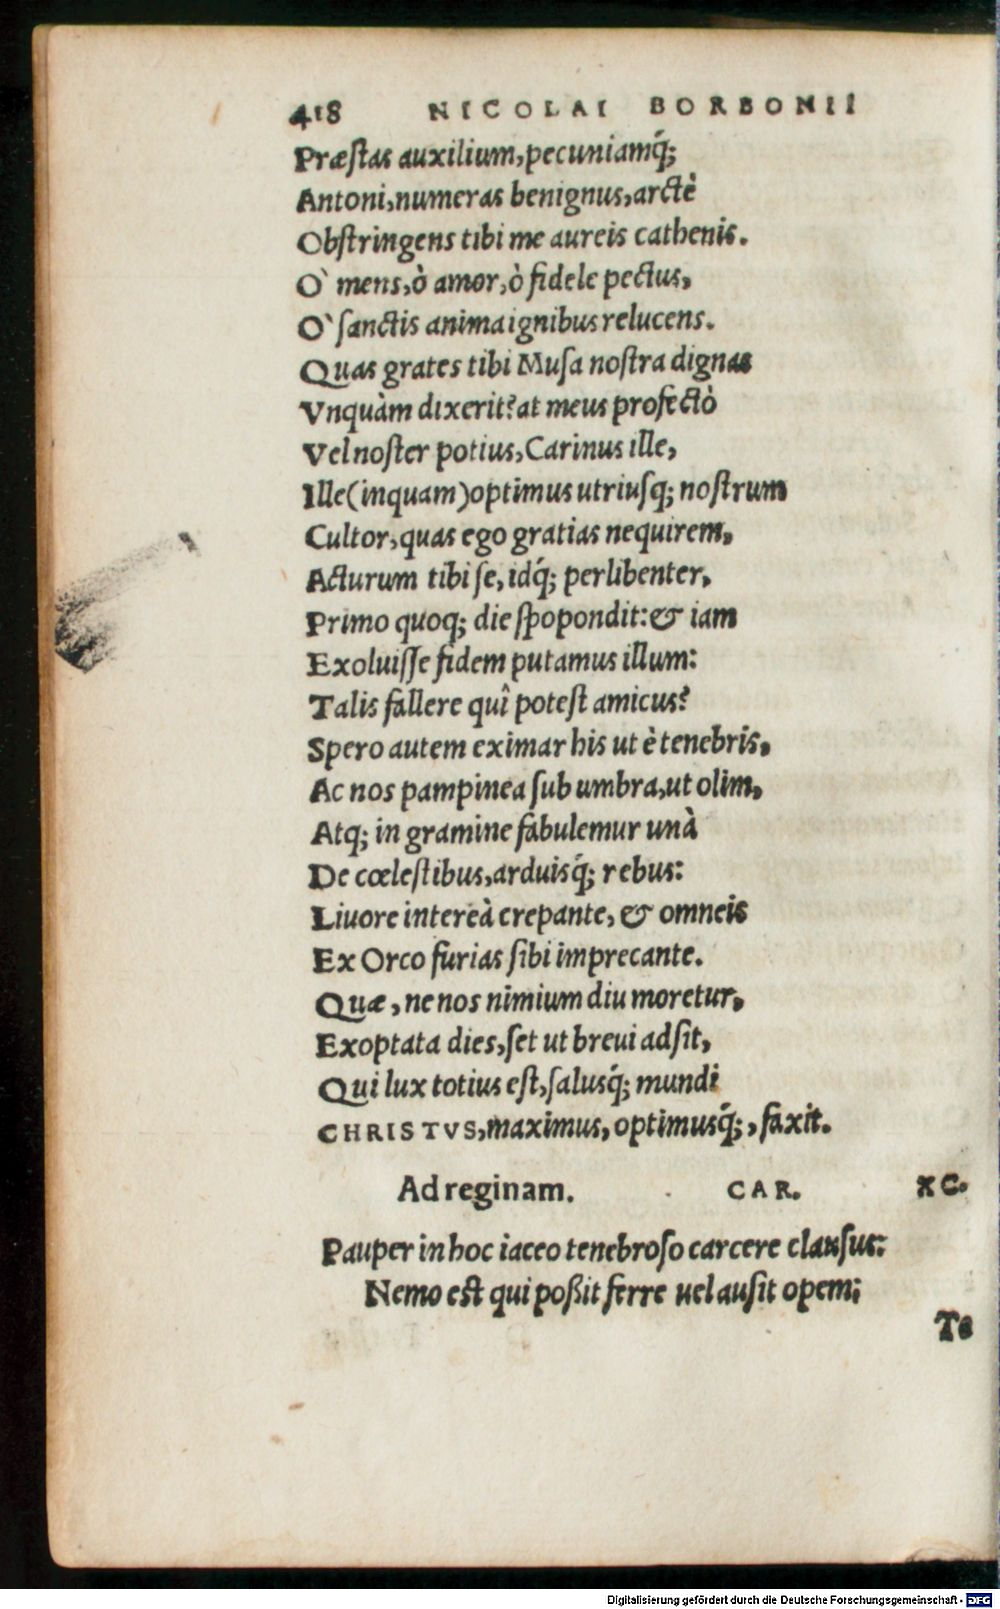 418 NICOLAI BORBONII
Præſtas auxilium, pecuniamq́;
Antoni, numeras benignus, arctè
Obſtringens tibi me aureis cathenis.
O` mens, ò amor, ò fidele pectus,
O` ſanctis anima ignibus relucens.
Quas grates tibi Muſa noſtra dignas
Vnquàm dixerit? at meus profectò
Vel noſter potius, Carinus ille,
Ille (inquam) optimus utriuſq; noſtrum
Cultor, quas ego gratias nequirem,
Acturum tibi ſe, idq́; perlibenter,
Primo quoq; die ſpopondit: & iam
Exoluiſſe fidem putamus illum:
Talis fallere quî poteſt amicus?
Spero autem eximar his ut è tenebris,
Ac nos pampinea ſub umbra, ut olim,
Atq; in gramine fabulemur unà
De cœleſtibus, arduisq́; rebus:
Liuore intereà crepante, & omneis
Ex Orco furias ſibi imprecante.
Quæ, ne nos nimium diu moretur,
Exoptata dies, ſet ut breui adſit,
Qui lux totius eſt, ſalusq́; mundi
CHRISTVS, maximus, optimusq́;, faxit.
Ad reginam. CAR. XC.
Pauper in hoc iaceo tenebroſo carcere clauſus:
Nemo est qui poßit ferre uel auſit opem;
Te
Digitalisierung gefördert durch die Deutsche Forschungsgemeinschaft - DFG